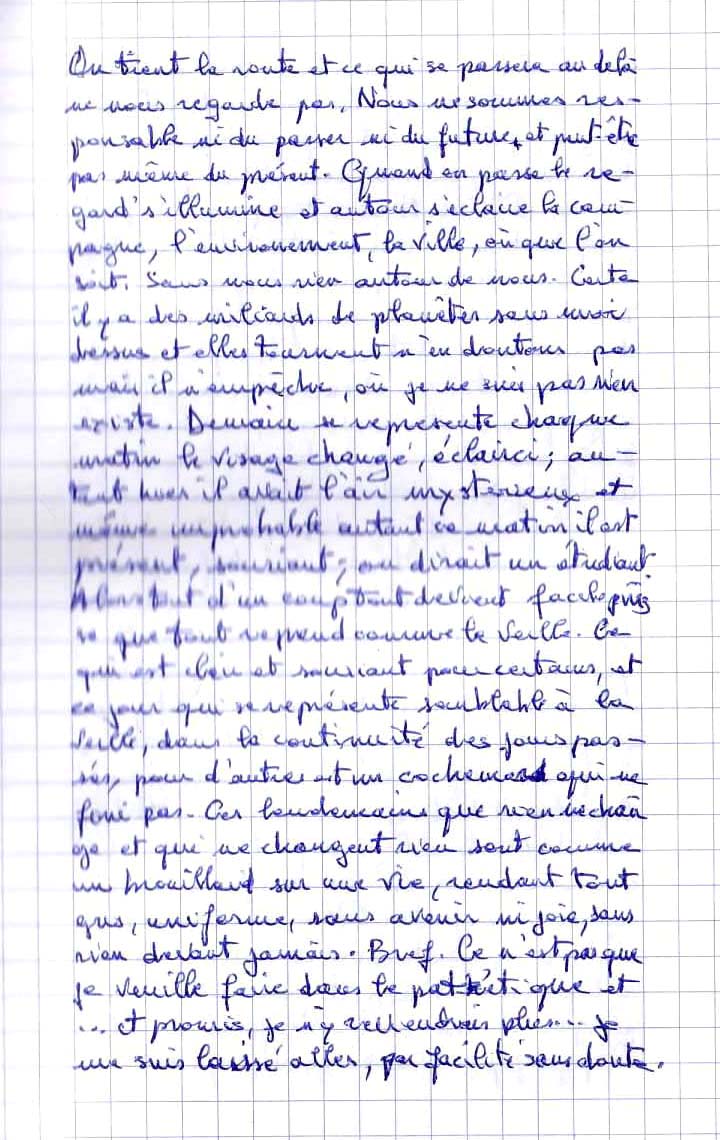 On tient la route et ce qui se passera au delà
ne nous regarde pas. Nous ne sommes res-
ponsable ni du passer ni du future, et peut-être
pas même du présent. Quand on passe le re-
gard s'illumine et autour s'éclaire la cam-
pagne, l'environement, la ville, où que l'on
soit. Sans nous rien autour de nous. Certe
il y a des milliards de planètes sans moi
dessus et elles tournent n'en doutons pas
mais il n'empêche, où je ne suis pas rien
existe. Demain se represente chaque
matin le visage changé, éclairci; au-
tant hier il avait l'air mysterieux et
même improbable autant ce matin il est
présent, souriant; on dirait un étudiant.
Alors tout d'un coup tout devient facile puis
que tout reprend comme la veille. Ce
qui est bleu et souriant pour certains, et
ce jour qui se représente semblable à la
veille, dans la continuité des jours pas-
sés, pour d'autre est un cochemard qui ne
fini pas. Ces lendemains que rien ne chan
ge et qui ne changent rien sont comme
un brouillard sur une vie, rendant tout
gris, uniforme, sans avenir ni joie, sans
rien devant jamais. Bref. Ce n'est pas que
je veuille faire dans le pathétique et
... et promis, je n'y reviendrais plus... Je
me suis laissé aller, par facilité sans doute.